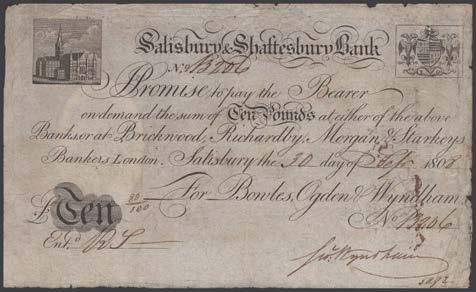 Salisbury & Shaftesbury Bank
No. 13206
Promise to pay the Bearer
on demand the sum of Ten Pounds at either of the above
Banks, or at Brickwood, Richardby, Morgan & Starkeys
Bankers London. Salisbury the 30 day of 1808
For Bowles, Ogden & Wyndham,
£ Ten
No 13206
Entd.
Wyndham